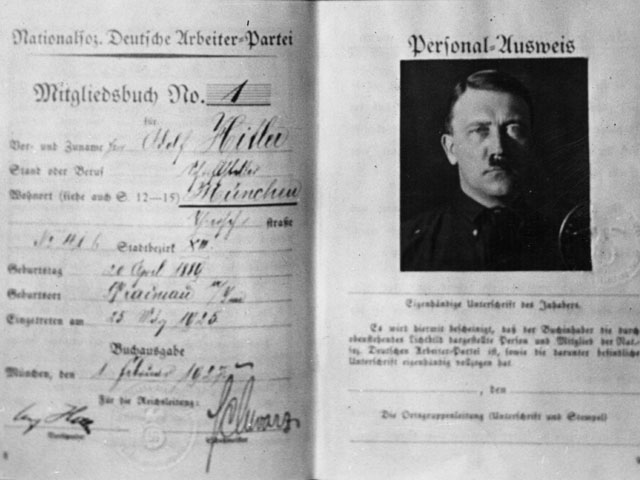 Nationalsoz. Deutsche Arbeiter-Partei
Mitgliedsbuch No. 1
für
Vor- und Zuname Adolf Hitler
Stand oder Beruf
Wohnort (siehe auch S. 12—15) München
straße
Stadtbezirk
Geburtstag 20 April 1889
Geburtsort Braunau
Eingetreten am 1925
Buchausgabe
München, den 1 Februar 1927
Für die Reichsleitung:
Schwarz
Personal-Ausweis
Eigenhändige Unterschrift des Inhabers.
Es wird hiermit bescheinigt, daß der Buchinhaber die durch
obenstehendes Lichtbild dargestellte Person und Mitglied der Nat-
soz. Deutschen Arbeiter-Partei ist, sowie die darunter befindliche
Unterschrift eigenhändig vollzogen hat.
, den
Die Ortsgruppenleitung (Unterschrift und Stempel)